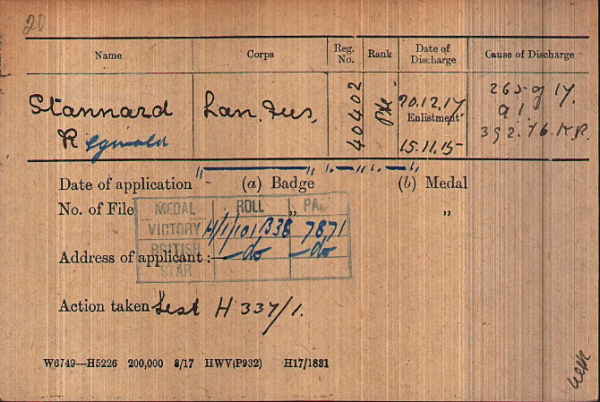 20
Name Corps Reg. No. Rank Date of Discharge Cause of Discharge
Stannard Lan. Fus. 40402 Pte 20.12.17 265 of 17.
Reginald Enlistment 9 1.
15.11.15 392. 16. K.R.
Date of application (a) Badge (b) Medal
No. of File " "
MEDAL ROLL PAGE
VICTORY H/1/101B38 7871
BRITISH —do— —do—
STAR
Address of applicant :—
Action taken List H 337/1.
W6749—H5226 200,000 8/17 HWV(P932) H17/1831